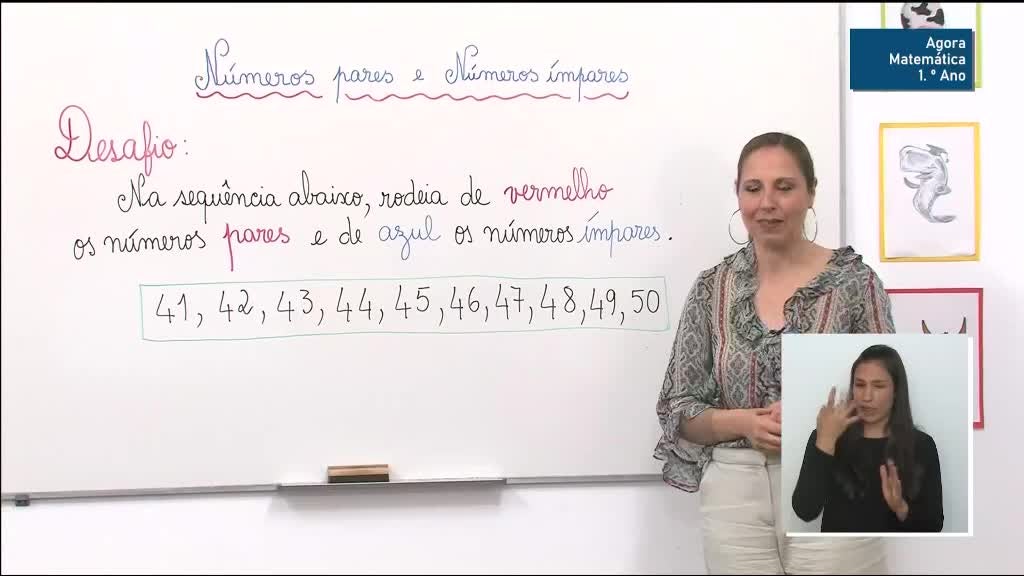 Números pares e Números ímpares
Desafio:
Na sequência abaixo, rodeia de vermelho
os números pares e de azul os números ímpares.
41, 42, 43, 44, 45, 46, 47, 48, 49, 50
Agora
Matemática
1.º Ano